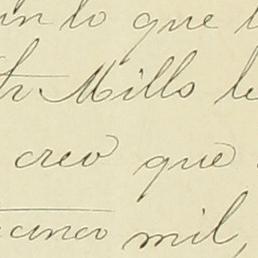 un lo que l
tr. Mills le
creo que
cinco mil,